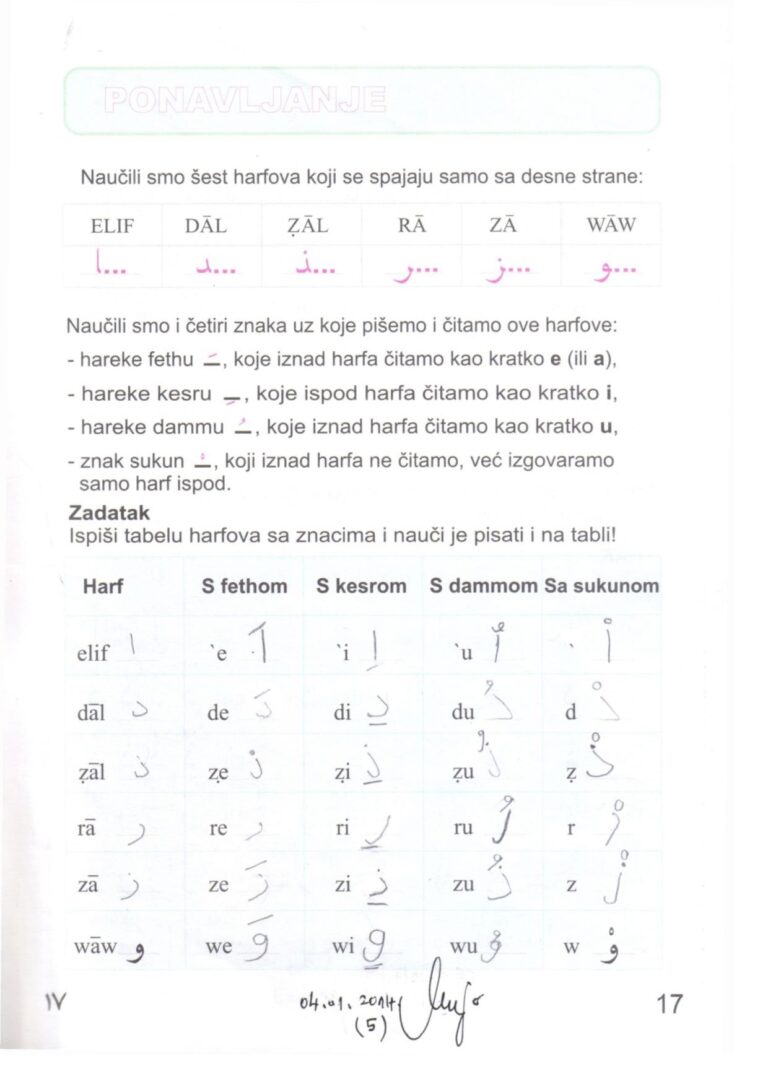 PONAVLJANJE
Naučili smo šest harfova koji se spajaju samo sa desne strane:
ELIF DĀL ẒĀL RĀ ZĀ WĀW
ا... د... ذ... ر... ز... و...
Naučili smo i četiri znaka uz koje pišemo i čitamo ove harfove:
- hareke fethu ـَ, koje iznad harfa čitamo kao kratko e (ili a),
- hareke kesru ـِ, koje ispod harfa čitamo kao kratko i,
- hareke dammu ـُ, koje iznad harfa čitamo kao kratko u,
- znak sukun ـْ, koji iznad harfa ne čitamo, već izgovaramo
samo harf ispod.
Zadatak
Ispiši tabelu harfova sa znacima i nauči je pisati i na tabli!
Harf S fethom S kesrom S dammom Sa sukunom
elif ا `e اَ `i اِ `u اُ ` اْ
dāl د de دَ di دِ du دُ d دْ
ẓāl ذ ẓe ذ ẓi ذِ ẓu ذُ ẓ ذْ
rā ر re ر ri رِ ru رُ r رْ
zā ز ze زَ zi زِ zu زُ z زْ
wāw و we وَ wi وِ wu وُ w وْ
١٧ 04.01.2014 17
(5)